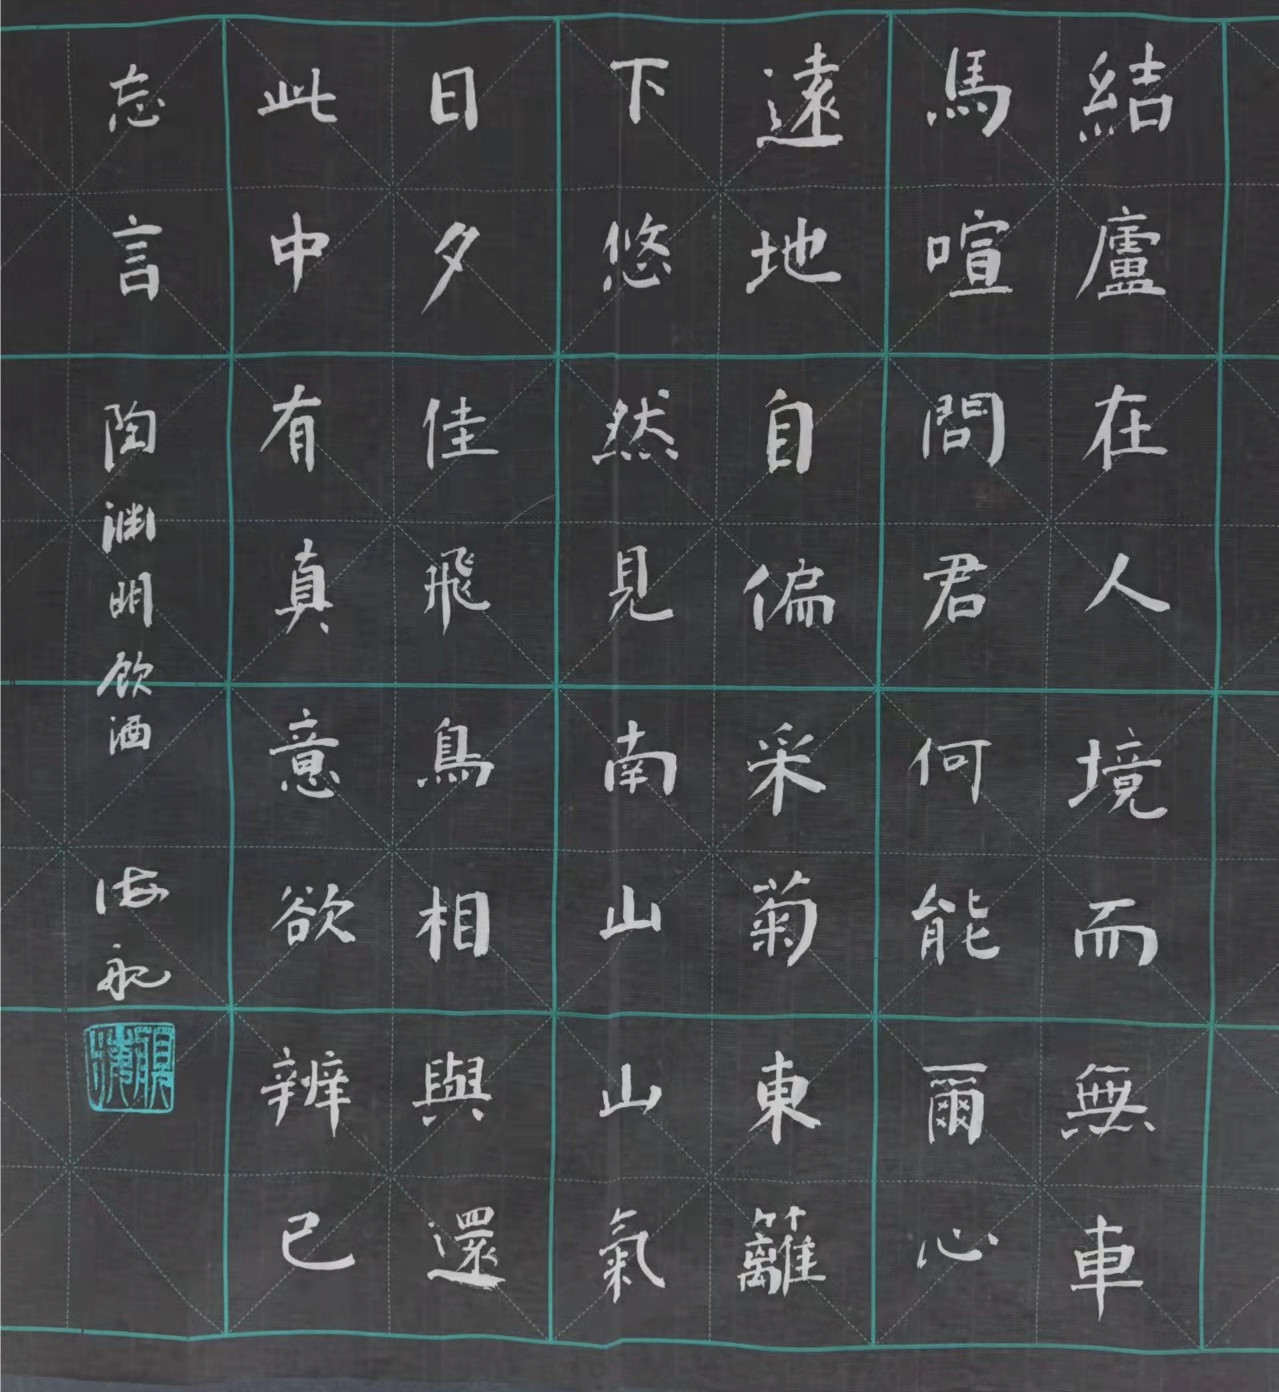 結廬在人境而無車
馬喧問君何能爾心
遠地自偏采菊東籬
下悠然見南山山氣
日夕佳飛鳥相與還
此中有真意欲辨已
忘言 陶淵明飲酒 海舩